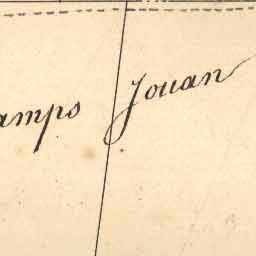 amps Jouan